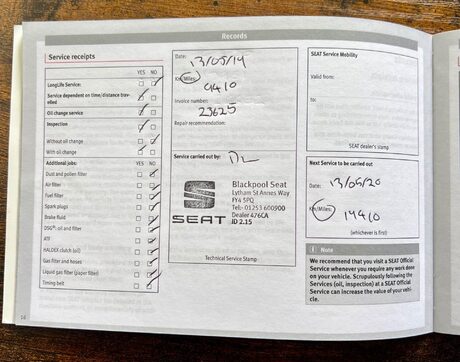 Records
Service receipts
YES NO
LongLife Service:
Service dependent on time/distance trav-
elled
Oil change service
Inspection
Without oil change
With oil change
Additional jobs: YES NO
Dust and pollen filter
Air filter
Fuel filter
Spark plugs
Brake fluid
DSG®: oil and filter
ATF
HALDEX clutch (oil)
Gas filter and hoses
Liquid gas filter (paper filter)
Timing belt
14
Date: 13/05/19
Km/Miles: 9410
Invoice number:
23625
Repair recommendation:
Service carried out by:
SEAT
Blackpool Seat
Lytham St Annes Way
FY4 5PQ
Tel:- 01253 600900
Dealer 476CA
ID 2.15
Technical Service Stamp
SEAT Service Mobility
Valid from:
to:
SEAT dealer's stamp
Next Service to be carried out
Date: 13/05/20
Km/Miles: 19410
(whichever is first)
i Note
We recommend that you visit a SEAT Official
Service whenever you require any work done
on your vehicle. Scrupulously following the
Services (oil, inspection) at a SEAT Official
Service can increase the value of your vehi-
cle.